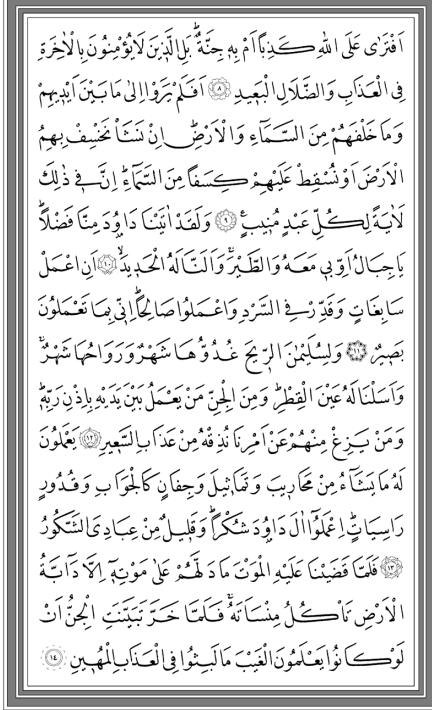 اَفْتَرٰى عَلَى اللهِ كَذِبًا اَمْ بِه۪ جِنَّةٌۜ بَلِ الَّذ۪ينَ لَا يُؤْمِنُونَ بِالْاٰخِرَةِ
فِي الْعَذَابِ وَالضَّلَالِ الْبَع۪يدِ ﴿٨﴾ اَفَلَمْ يَرَوْا اِلٰى مَا بَيْنَ اَيْد۪يهِمْ
وَمَا خَلْفَهُمْ مِنَ السَّمَٓاءِ وَالْاَرْضِۜ اِنْ نَشَأْ نَخْسِفْ بِهِمُ
الْاَرْضَ اَوْ نُسْقِطْ عَلَيْهِمْ كِسَفًا مِنَ السَّمَٓاءِۜ اِنَّ ف۪ي ذٰلِكَ
لَاٰيَةً لِكُلِّ عَبْدٍ مُن۪يبٍ۟ ﴿٩﴾ وَلَقَدْ اٰتَيْنَا دَاوُ۫دَ مِنَّا فَضْلًاۜ
يَا جِبَالُ اَوِّب۪ي مَعَهُ وَالطَّيْرَۚ وَاَلَنَّا لَهُ الْحَد۪يدَۙ ﴿١٠﴾ اَنِ اعْمَلْ
سَابِغَاتٍ وَقَدِّرْ فِي السَّرْدِ وَاعْمَلُوا صَالِحًاۜ اِنّ۪ي بِمَا تَعْمَلُونَ
بَص۪يرٌ ﴿١١﴾ وَلِسُلَيْمٰنَ الرّ۪يحَ غُدُوُّهَا شَهْرٌ وَرَوَاحُهَا شَهْرٌۚ
وَاَسَلْنَا لَهُ عَيْنَ الْقِطْرِۜ وَمِنَ الْجِنِّ مَنْ يَعْمَلُ بَيْنَ يَدَيْهِ بِاِذْنِ رَبِّه۪ۜ
وَمَنْ يَزِغْ مِنْهُمْ عَنْ اَمْرِنَا نُذِقْهُ مِنْ عَذَابِ السَّع۪يرِ ﴿١٢﴾ يَعْمَلُونَ
لَهُ مَا يَشَٓاءُ مِنْ مَحَار۪يبَ وَتَمَاث۪يلَ وَجِفَانٍ كَالْجَوَابِ وَقُدُورٍ
رَاسِيَاتٍۜ اِعْمَلُٓوا اٰلَ دَاوُ۫دَ شُكْرًاۜ وَقَل۪يلٌ مِنْ عِبَادِيَ الشَّكُورُ
﴿١٣﴾ فَلَمَّا قَضَيْنَا عَلَيْهِ الْمَوْتَ مَا دَلَّهُمْ عَلٰى مَوْتِه۪ٓ اِلَّا دَٓابَّةُ
الْاَرْضِ تَأْكُلُ مِنْسَاَتَهُۚ فَلَمَّا خَرَّ تَبَيَّنَتِ الْجِنُّ اَنْ
لَوْ كَانُوا يَعْلَمُونَ الْغَيْبَ مَا لَبِثُوا فِي الْعَذَابِ الْمُه۪ينِ ﴿١٤﴾